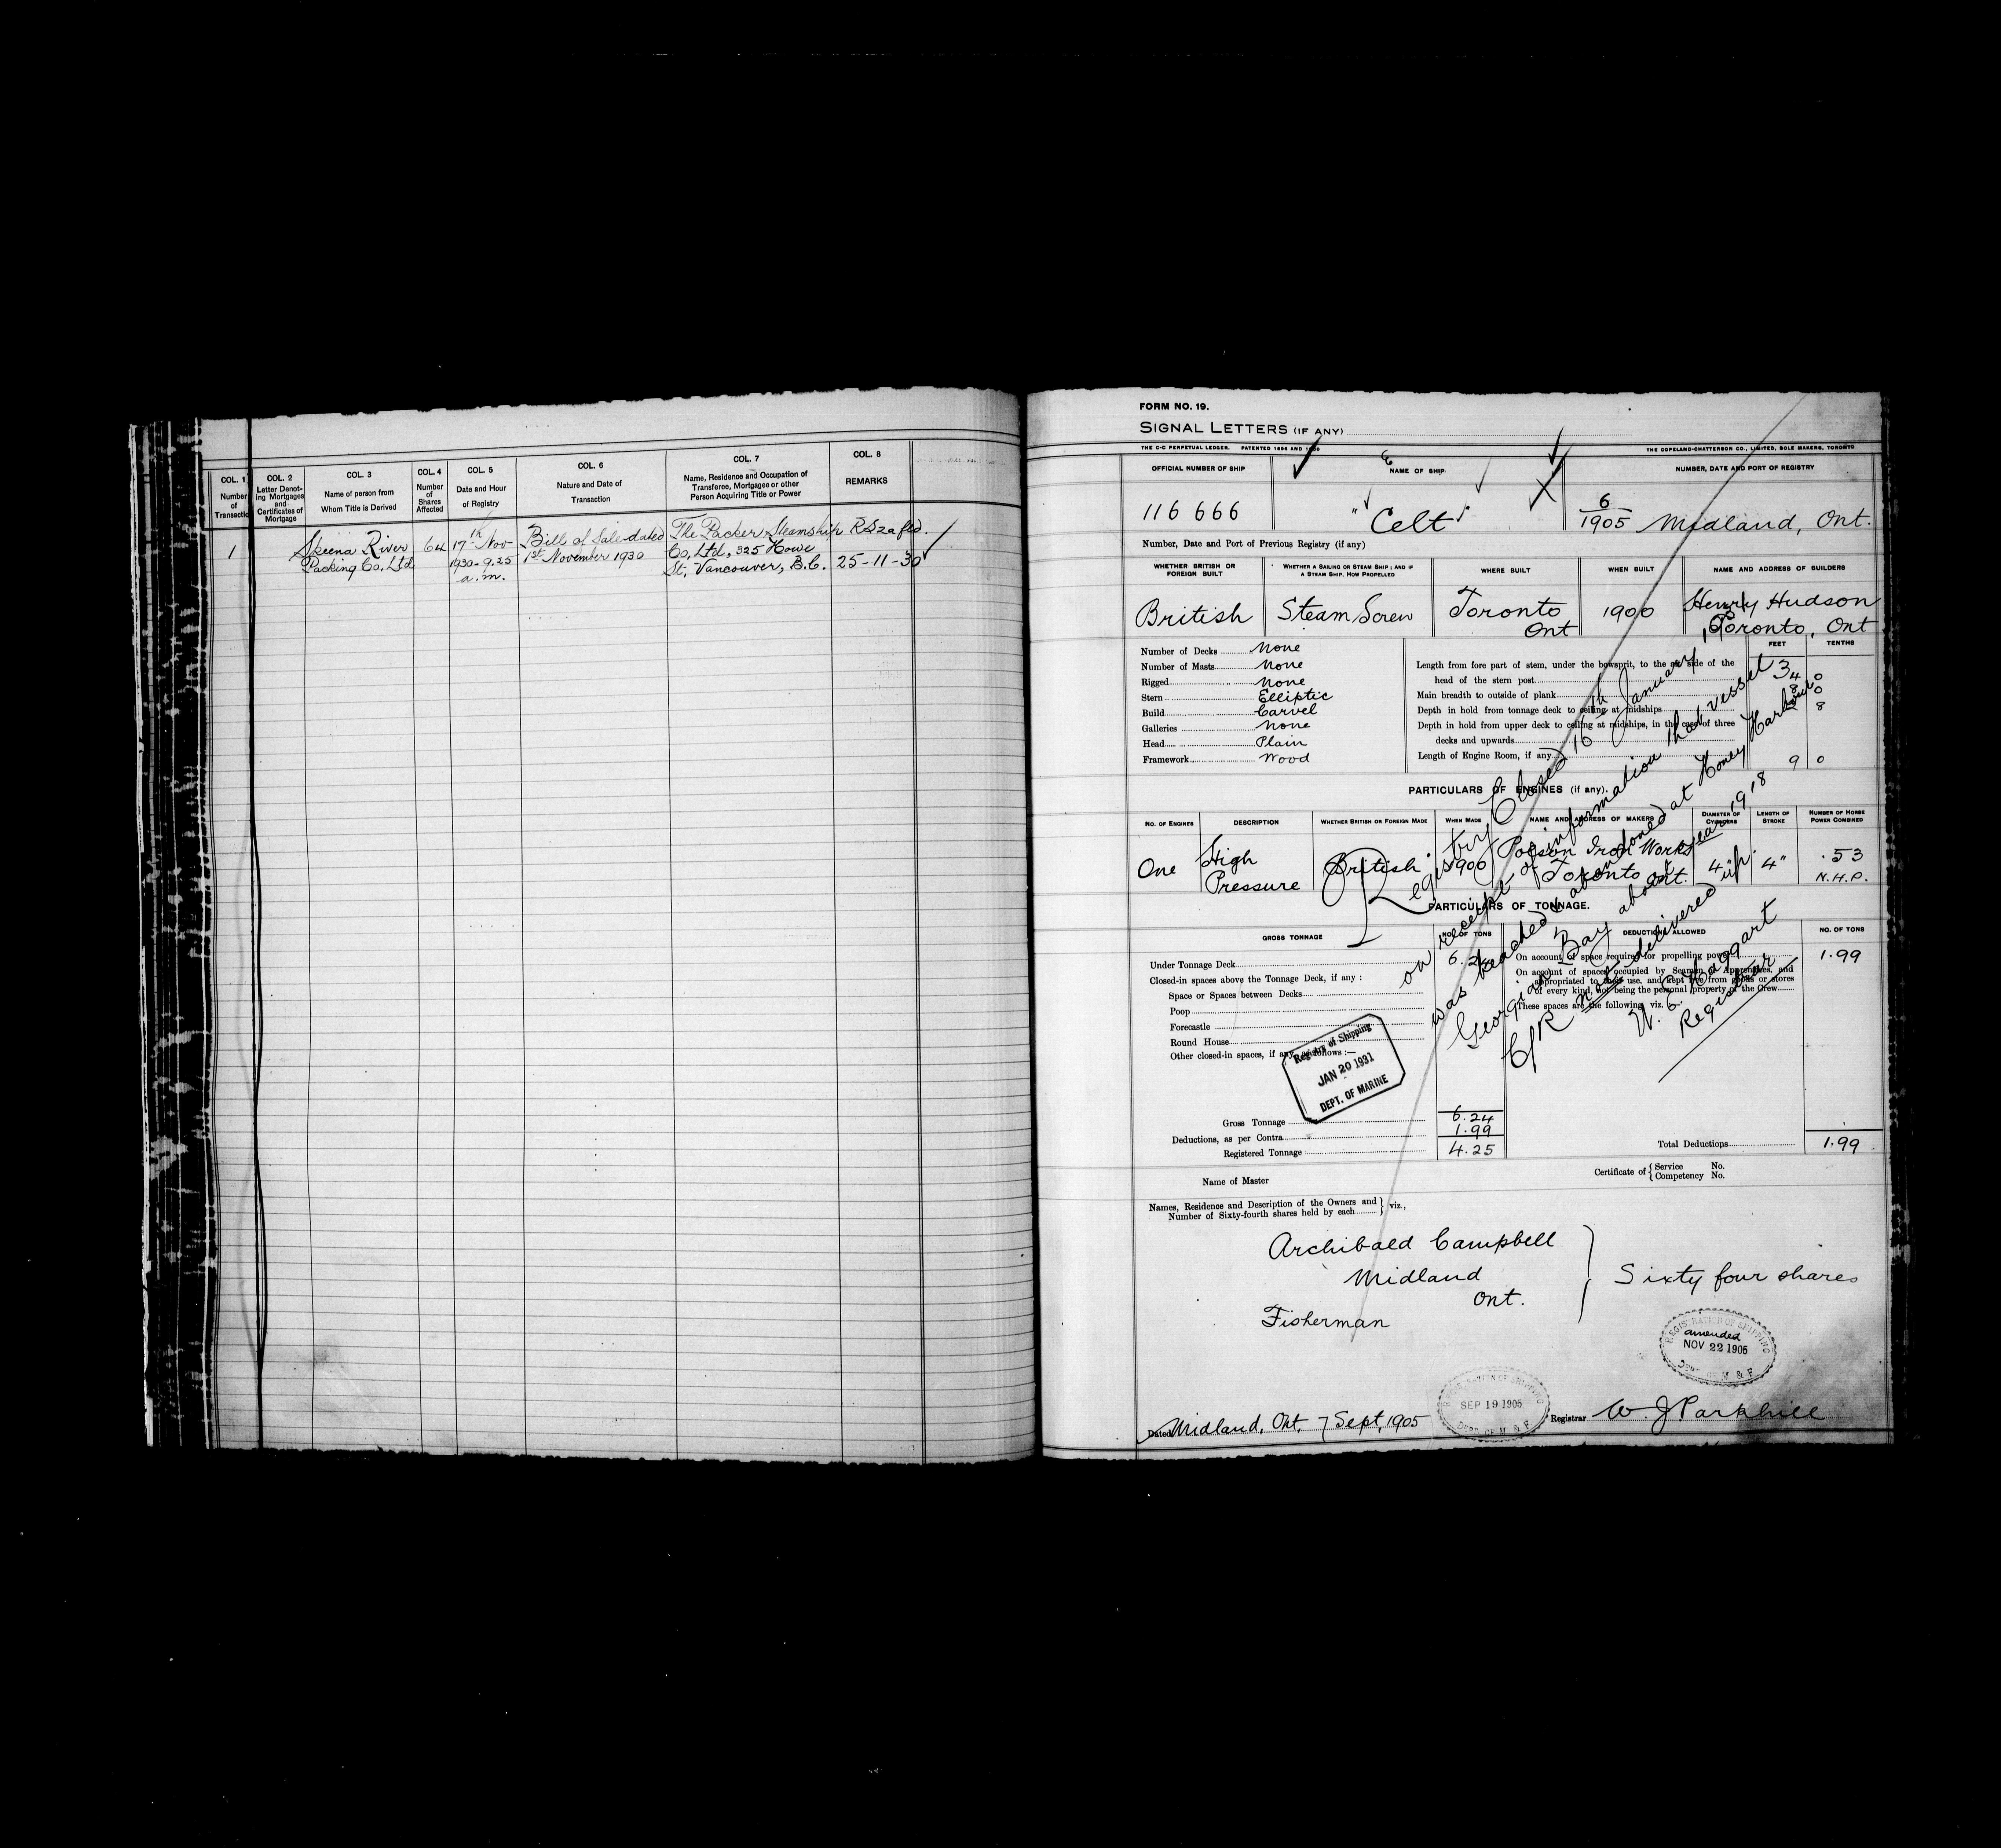 COL. 1
Number
of
Transactio
COL. 2
Letter Denot-
ing Mortgages
and
Certificates of
Mortgage
COL. 3
Name of person from
Whom Title is Derived
COL. 4
Number
of
Shares
Affected
COL. 5
Date and Hour
of Registry
COL. 6
Nature and Date of
Transaction
COL. 7
Name, Residence and Occupation of
Transferee, Mortgagee or other
Person Acquiring Title or Power
COL. 8
REMARKS
1
Skeena River
Packing Co, Ltd
64
17th Nov-
1930-9.25
a.m.
Bill of Sale dated
1st November 1930
The Packer Steamship
Co, Ltd, 325 Howe
St, Vancouver, B.C.
25-11-30
FORM NO. 19.
SIGNAL LETTERS (IF ANY)
THE C-C PERPETUAL LEDGER. PATENTED 1896 AND
THE COPELAND-CHATTERSON CO., LIMITED, SOLE MAKERS, TORONTO
OFFICIAL NUMBER OF SHIP
NAME OF SHIP
NUMBER, DATE AND PORT OF REGISTRY
116 666
"Celt"
6
1905 Midland, Ont.
Number, Date and Port of Previous Registry (if any)
WHETHER BRITISH OR
FOREIGN BUILT
WHETHER A SAILING OR STEAM SHIP; AND IF
A STEAM SHIP, HOW PROPELLED
WHERE BUILT
WHEN BUILT
NAME AND ADDRESS OF BUILDERS
British
Steam Screw
Toronto
Ont
1900
Henry Hudson
Toronto, Ont
Number of Decks None
Number of Masts None
Rigged None
Stern Elliptic
Build Carvel
Galleries None
Head Plain
Framework Wood
FEET
TENTHS
Length from fore part of stem, under the bowsprit, to the aft side of the
head of the stern post 34 0
Main breadth to outside of plank 8 0
Depth in hold from tonnage deck to ceiling at midships 8
Depth in hold from upper deck to ceiling at midships, in the case of three
decks and upwards
Length of Engine Room, if any 9 0
PARTICULARS OF ENGINES (if any).
NO. OF ENGINES
DESCRIPTION
WHETHER BRITISH OR FOREIGN MADE
WHEN MADE
NAME AND ADDRESS OF MAKERS
DIAMETER OF
CYLINDERS
LENGTH OF
STROKE
NUMBER OF HORSE
POWER COMBINED
One
High
Pressure
British
1900
Polson Iron Works
Toronto Ont.
4"
4"
.53
N.H.P.
PARTICULARS OF TONNAGE.
GROSS TONNAGE
NO. OF TONS
DEDUCTIONS ALLOWED
NO. OF TONS
Under Tonnage Deck 6.24
Closed-in spaces above the Tonnage Deck, if any :
Space or Spaces between Decks
Poop
Forecastle
Round House
Other closed-in spaces, if any, as follows :—
On account of space required for propelling power 1.99
On account of spaces occupied by Seamen or Apprentices, and
appropriated to their use, and kept free from goods or stores
of every kind, not being the personal property of the Crew
These spaces are the following, viz.
Registry Closed 16th January, 1931
on receipt of information that vessel
was beached & abandoned at Honey Harbour
Georgian Bay about year 1918
C/R not delivered up.
W. E. Haggart
Registrar
Registry of Shipping
JAN 20 1931
DEPT. OF MARINE
Gross Tonnage 6.24
Deductions, as per Contra 1.99
Registered Tonnage 4.25
Total Deductions 1.99
Name of Master
Certificate of { Service No.
Competency No.
Names, Residence and Description of the Owners and } viz.,
Number of Sixty-fourth shares held by each
Archibald Campbell
Midland
Ont.
Fisherman
Sixty four shares
REGISTRATION OF SHIPPING
amended
NOV 22 1905
DEPT. OF M & F
REGISTRATION OF SHIPPING
SEP 19 1905
DEPT. OF M & F
Dated Midland, Ont, 7 Sept, 1905
Registrar W. J Parkhill